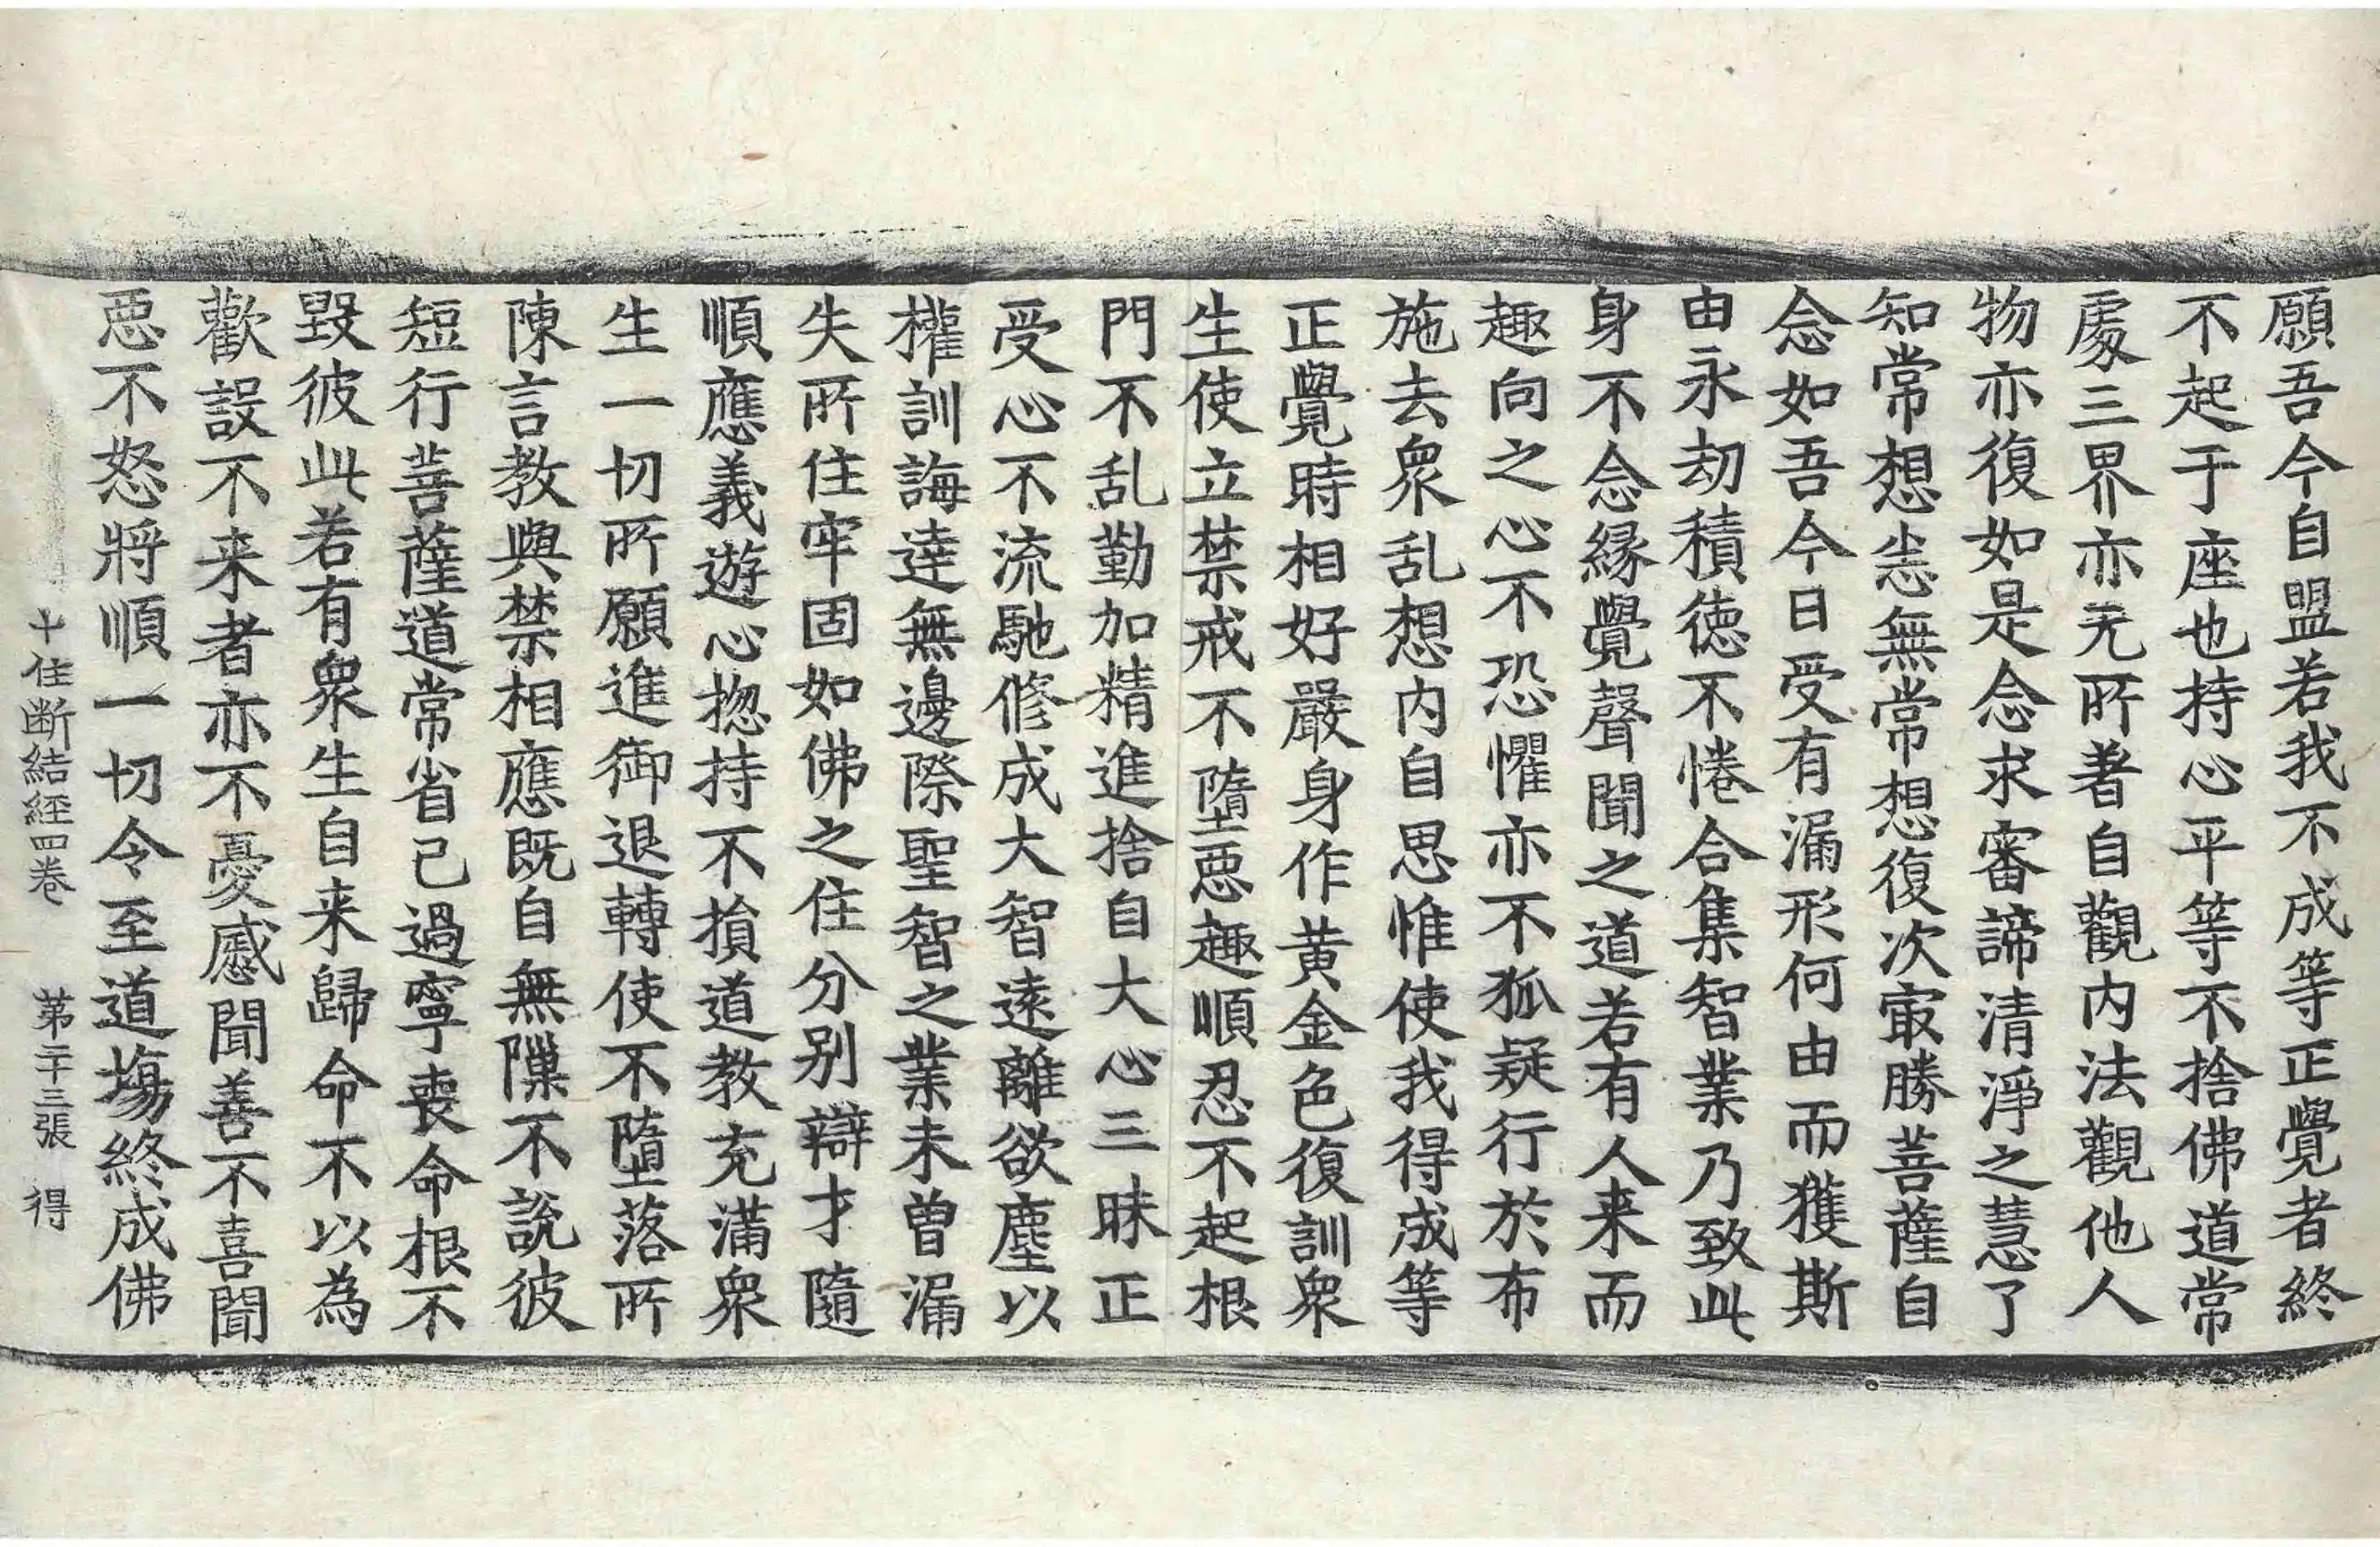 願吾今自盟若我不成等正覺者終
不起于座也持心平等不捨佛道常
處三界亦无所著自觀內法觀他人
物亦復如是念求審諦清淨之慧了
知常想悉無常想復次㝡勝菩薩自
念如吾今日受有漏形何由而獲斯
由永劫積德不惓合集智業乃致此
身不念緣覺聲聞之道若有人来而
趣向之心不恐懼亦不狐疑行於布
施去衆乱想內自思惟使我得成等
正覺時相好嚴身作黃金色復訓衆
生使立禁戒不墮惡趣順忍不起根
門不乱勤加精進捨自大心三昧正
受心不流馳修成大智遠離欲塵以
權訓誨達無邊際聖智之業未曾漏
失所住牢固如佛之住分別辯才隨
順應義遊心揔持不損道教充滿衆
生一切所願進御退轉使不墮落所
陳言教與禁相應既自無隟不說彼
短行菩薩道常省己過寧喪命根不
毀彼此若有衆生自来歸命不以為
歡設不来者亦不憂慼聞善不喜聞
惡不怒將順一切令至道場終成佛
十住断結經四卷 第二十三張 得